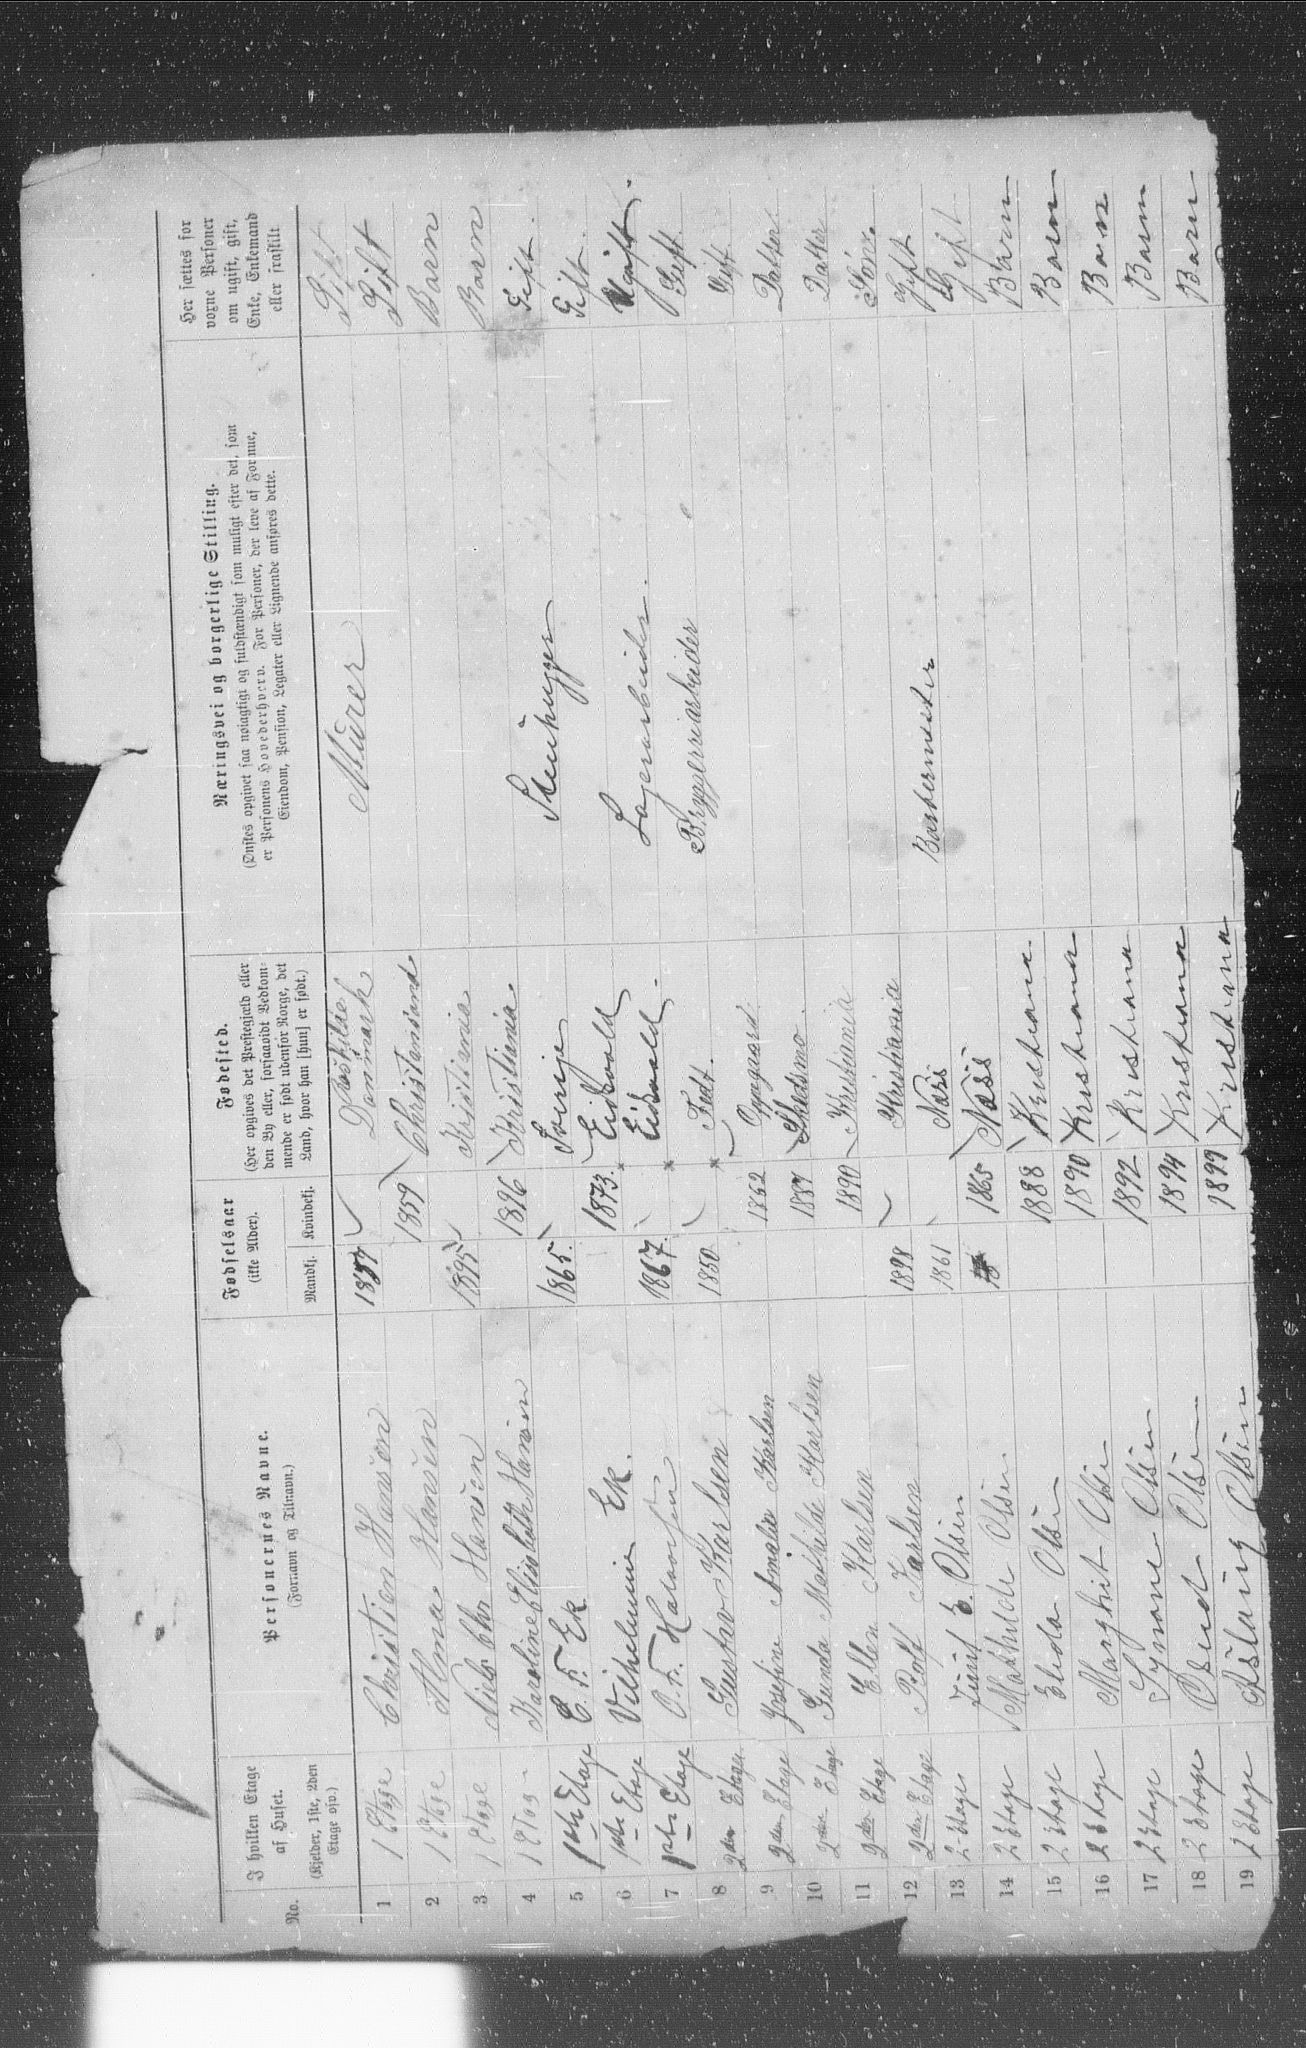 No.
I hvilken Etage af Huset. (Kjelder, 1ste, 2den Etage osv.)
Personernes Navne. (Fornavn og Tilnavn.)
Fødselsaar (ikke Alder). Mandkj. Kvindekj.
Fødested. (Her opgives det Præstegjæld eller den By eller, forsaavidt Vedkommende er født udenfor Norge, det Land, hvor han [hun] er født.)
Næringsvei og borgerlige Stilling. (Ønskes opgivet saa nøiagtigt og fuldstændigt som muligt efter det, som er Personens Hovederhverv. For Personer, der leve af Formue, Eiendom, Pension, Legater eller Lignende anføres dette.
Her sættes for voxne Personer om ugift, gift, Enke, Enkemand eller fraskilt
1 1 Etage Christien Hansen 1857 Roskilde Danmark Murer Gift
2 1 Etage Alma Hansen 1859 Christiansand Gift
3 1 Etage Niels Chr Hansen 1895 Kristiania Barn
4 1 Etag Karoline Elisabeth Hansen 1896 Kristiania Barn
5 1ste Etage C. F. Ek 1865 Sverige Stenhugger Gift
6 1ste Etage Vilhelmine Ek. 1873 Eidsvold Gift
7 1ste Etage O. F. Halvorsen 1867 Eidsvold Lagerarbeider Ugift
8 2den Etage Gustav Karlsen 1850 Fedt. Bryggeriarbeider Gift
9 2den Etage Josefine Amalie Karlsen 1862 Gift
10 2den Etage Gunda Mathilde Karlsen 1887 Skedsmo Datter
11 2den Etage Ellen Karlsen 1890 Kristiania Datter
12 2den Etage Rolf Karlsen 1898 Kristiania Søn
13 2 Etage E. Olsen 1861 Næss Barbermester Gift
14 2 Etage Mathilde Olsen 1865 Næss Gift
15 2 Etage Olsen 1888 Kristiana Barn
16 2 Etage Marghit Olsen 1890 Kristiana Barn
17 2 Etage Synove Olsen 1892 Kristiana Barn
18 2 Etage Olsen 1894 Kristiana Barn
19 2 Etage Aslaug Olsen 1899 Kristiana Barn